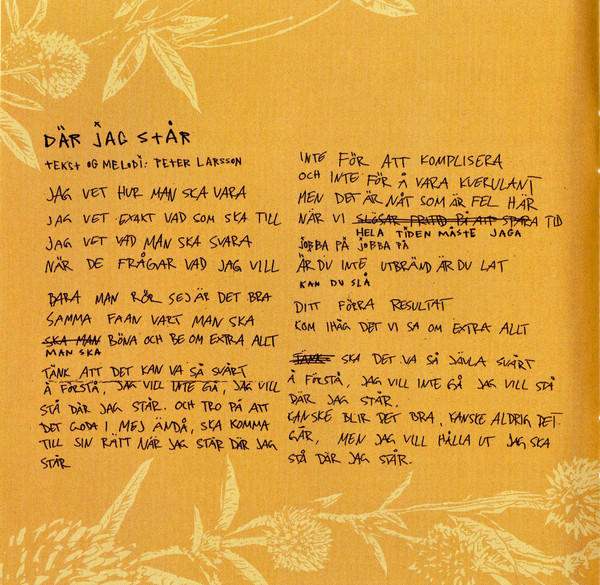 DÄR JAG STÅR
TEKST OG MELODI: PETER LARSSON
JAG VET HUR MAN SKA VARA
JAG VET EXAKT VAD SOM SKA TILL
JAG VET VAD MAN SKA SVARA
NÄR DE FRÅGAR VAD JAG VILL
BARA MAN RÖR SEJ ÄR DET BRA
SAMMA FAAN VART MAN SKA
SKA MAN BÖNA OCH BE OM EXTRA ALLT
MAN SKA
TÄNK ATT DET KAN VA SÅ SVÅRT
Å FÖRSTÅ, JAG VILL INTE GÅ, JAG VILL
STÅ DÄR JAG STÅR. OCH TRO PÅ ATT
DET GODA I MEJ ÄNDÅ, SKA KOMMA
TILL SIN RÄTT NÄR JAG STÅR DÄR JAG
STÅR
INTE FÖR ATT KOMPLISERA
OCH INTE FÖR Å VARA KVERULANT
MEN DET ÄR NÅT SOM ÄR FEL HÄR
NÄR VI SLÖSAR FRITID PÅ ATT SPARA TID
HELA TIDEN MÅSTE JAGA
JOBBA PÅ JOBBA PÅ
ÄR DU INTE UTBRÄND ÄR DU LAT
KAN DU SLÅ
DITT FÖRRA RESULTAT
KOM IHÅG DET VI SA OM EXTRA ALLT
TÄNK SKA DET VA SÅ JÄVLA SVÅRT
Å FÖRSTÅ, JAG VILL INTE GÅ JAG VILL STÅ
DÄR JAG STÅR.
KANSKE BLIR DET BRA, KANSKE ALDRIG DET
GÅR, MEN JAG VILL HÅLLA UT JAG SKA
STÅ DÄR JAG STÅR.